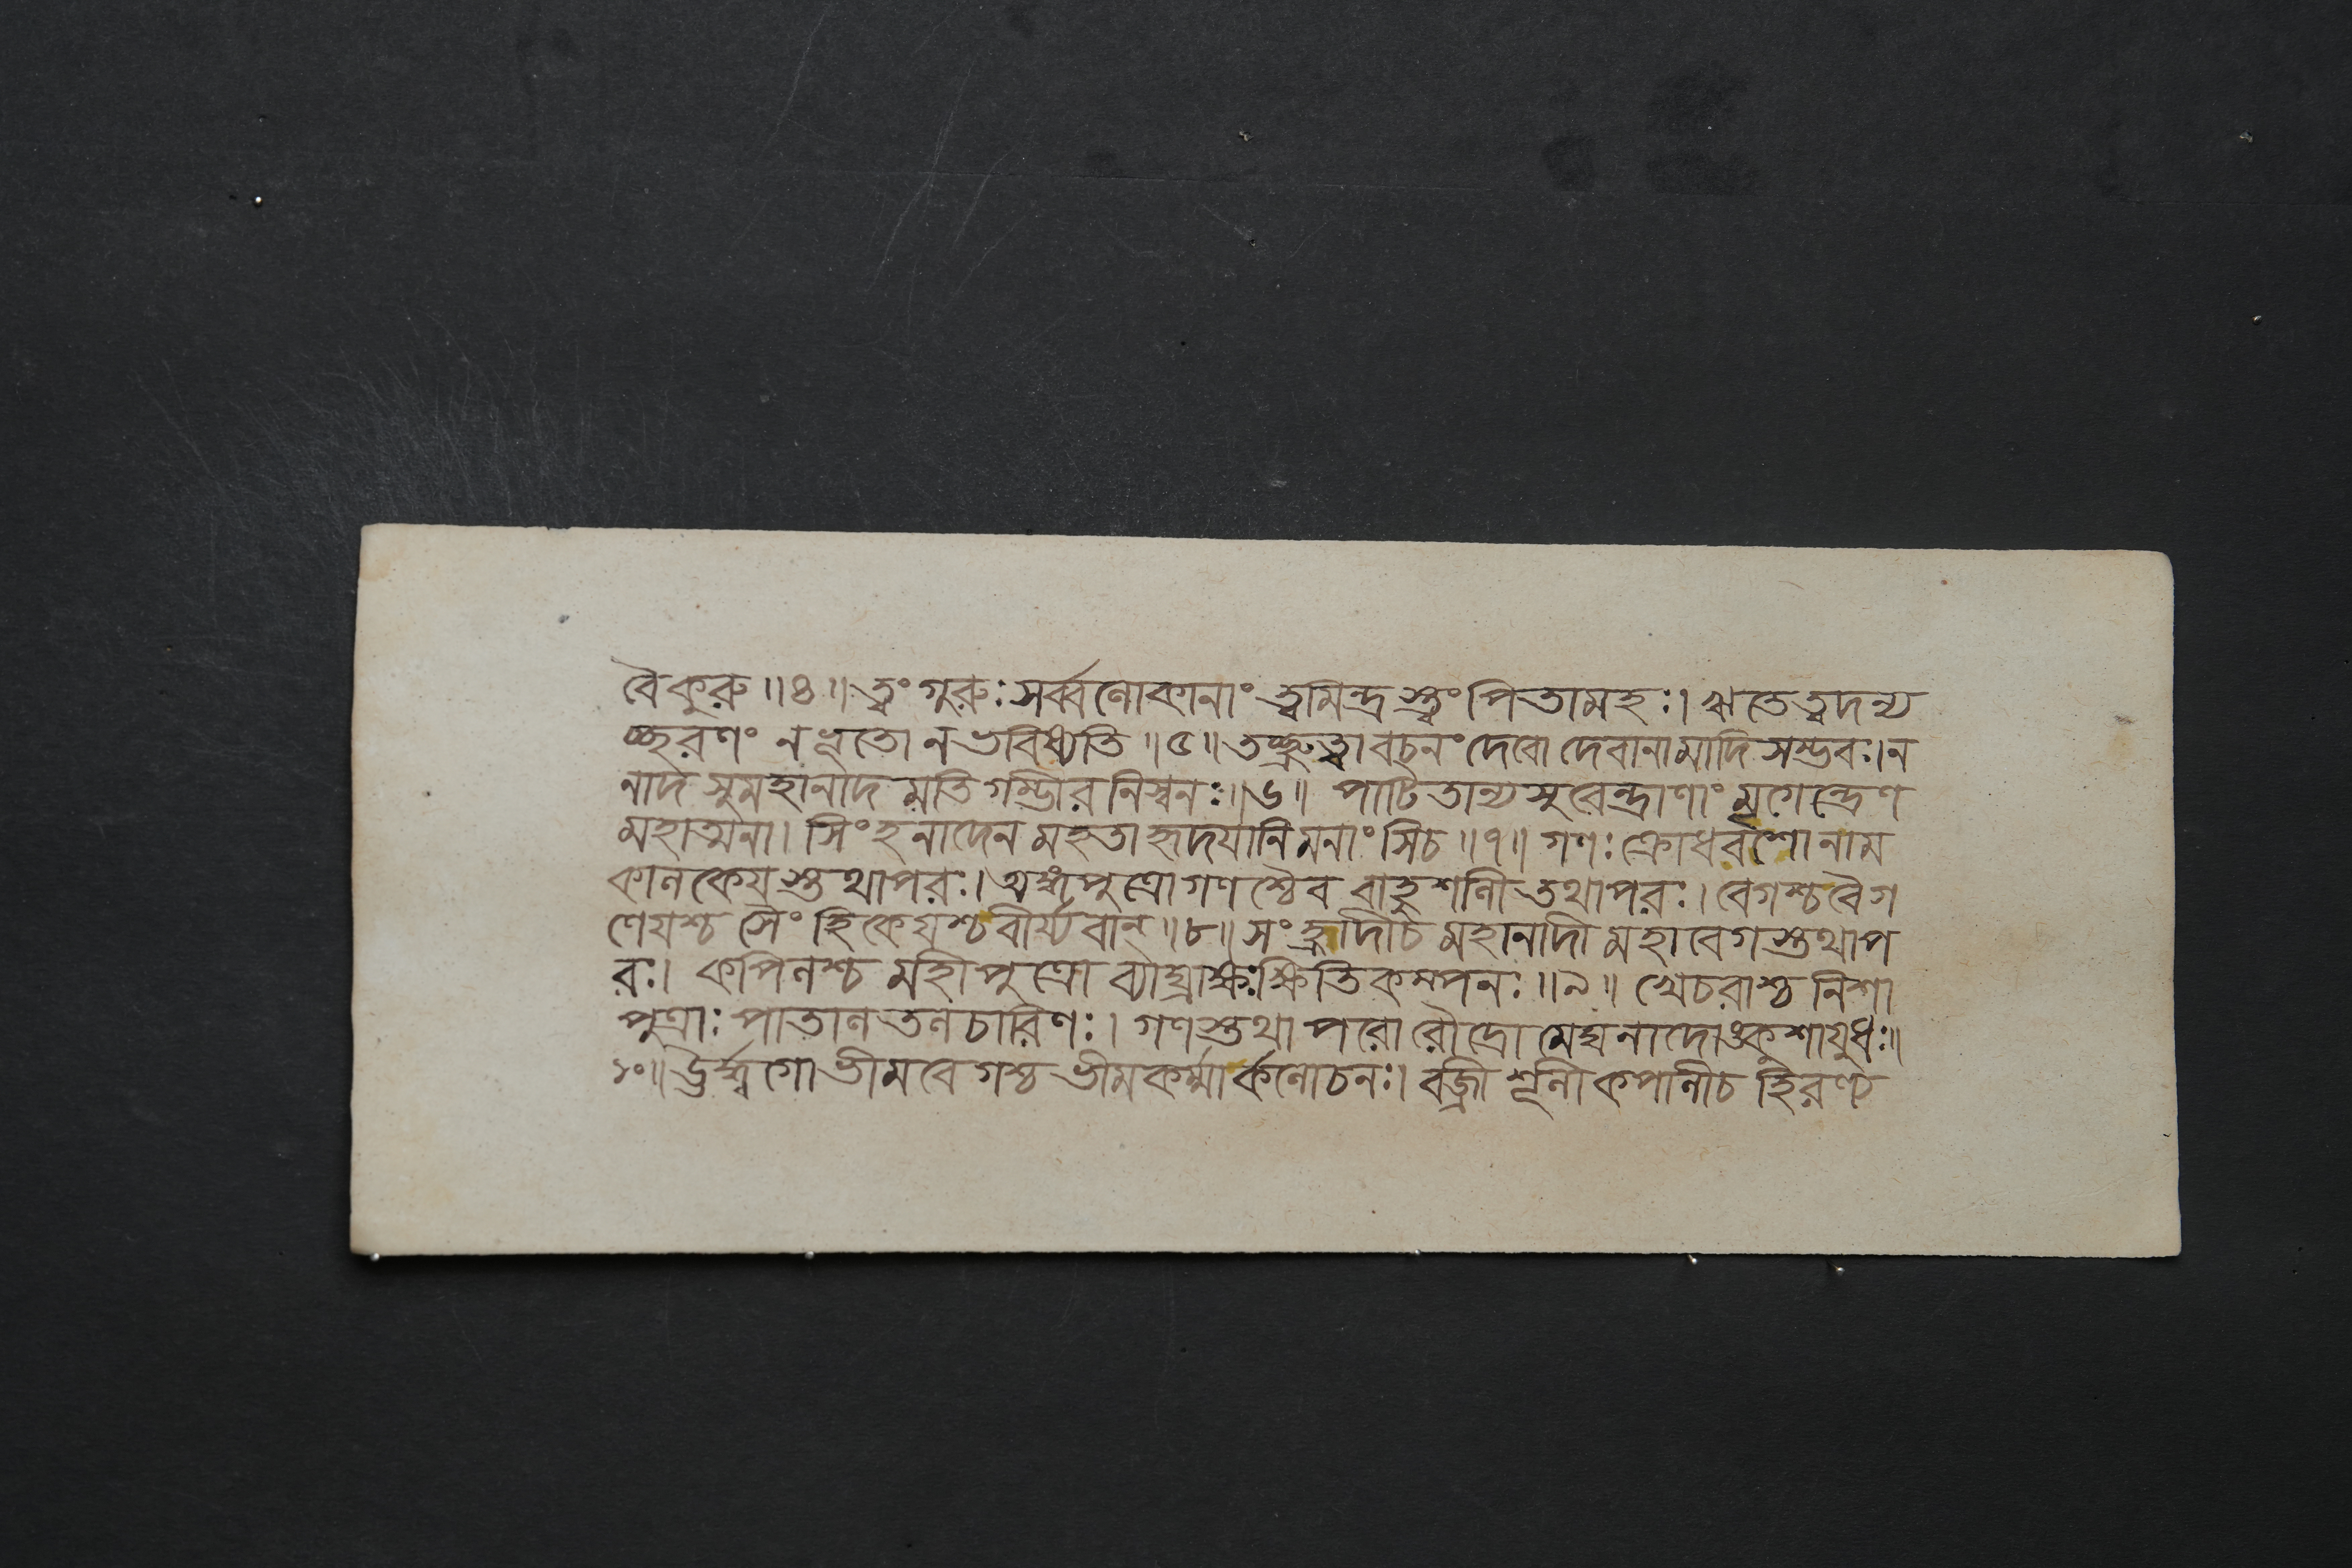 বৈকুরু ॥৪॥ ত্বং গুরুঃ সর্ব্বলোকানাং ত্বমিন্দ্রস্ত্বং পিতামহঃ। ঋতে ত্বদন্য
চ্ছরণং ন ধ্রুতো ন ভবিষ্যতি ॥৫॥ তচ্ছ্রুত্বা বচনং দেবো দেবানামাদি সম্ভবঃ। ন
নাদ সুমহানাদ মতি গম্ভীর নিস্বনঃ ॥৬॥ পাটিতান্যসুরেন্দ্রাণাং মৃগেন্দ্রেণ
মহাত্মনা। সিংহনাদেন মহতা হৃদয়ানি মনাংসিচ ॥৭॥ গণঃ ক্রোধবশো নাম
কালকেয়স্তথাপরঃ। অহ্নপুত্রোগণশ্চৈব বাহুশালী তথাপরঃ। বেগশ্চ বৈগ
লেয়শ্চ সৈংহিকেয়শ্চ বীর্য্যবান্ ॥৮॥ সংহ্রাদীচ মহানাদী মহাবেগস্তথাপ
রঃ। কপিলশ্চ মহীপুত্রো ব্যাঘ্রাক্ষঃ ক্ষিতিকম্পনঃ ॥৯॥ খেচরাশ্চ নিশা
পুত্রাঃ পাতাল তল চারিণঃ। গণস্তথা পরো রৌদ্রো মেঘনাদোঙ্কুশায়ুধঃ॥
১০॥ ঊর্দ্ধ্বগো ভীমবেগশ্চ ভীমকর্ম্মার্কলোচনঃ। বজ্রী শূলী কপালীচ হিরণ্য